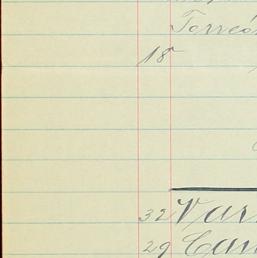 Torreó
18
32 Var
29 Can